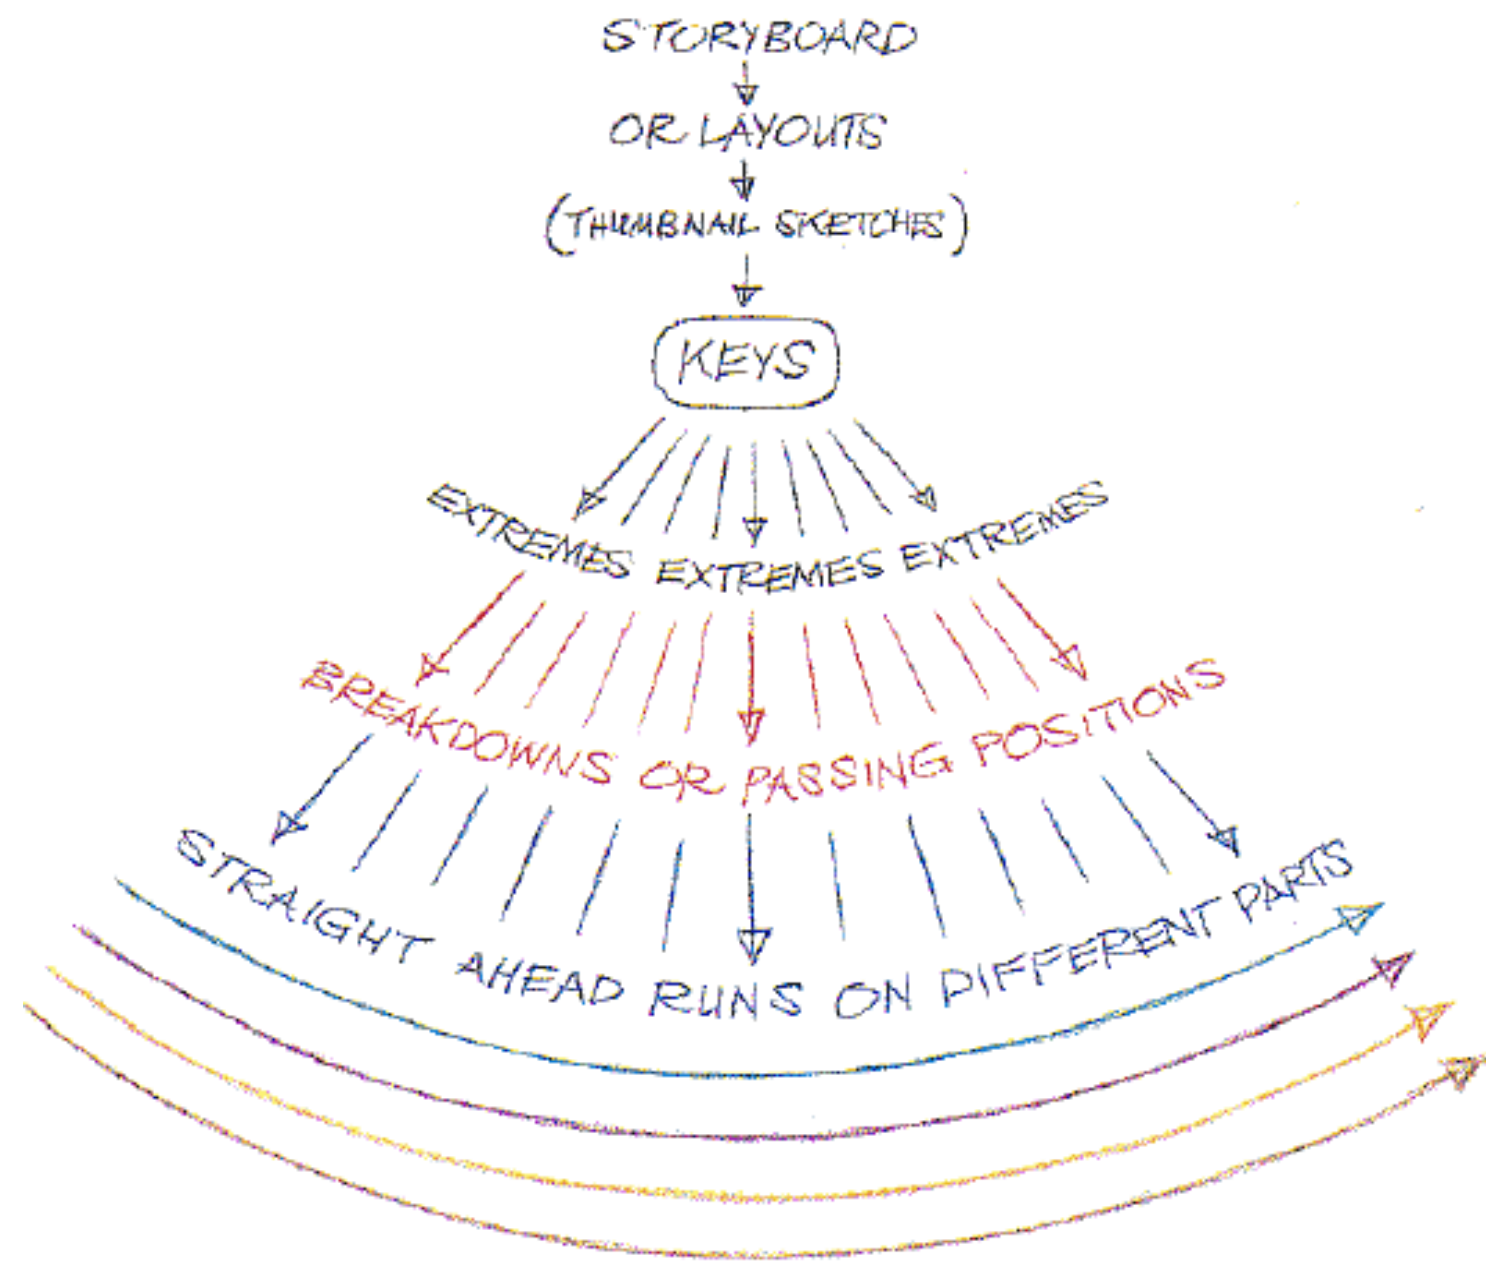 STORYBOARD
OR LAYOUTS
(THUMBNAIL SKETCHES)
KEYS
EXTREMES EXTREMES EXTREMES
BREAKDOWNS OR PASSING POSITIONS
STRAIGHT AHEAD RUNS ON DIFFERENT PARTS